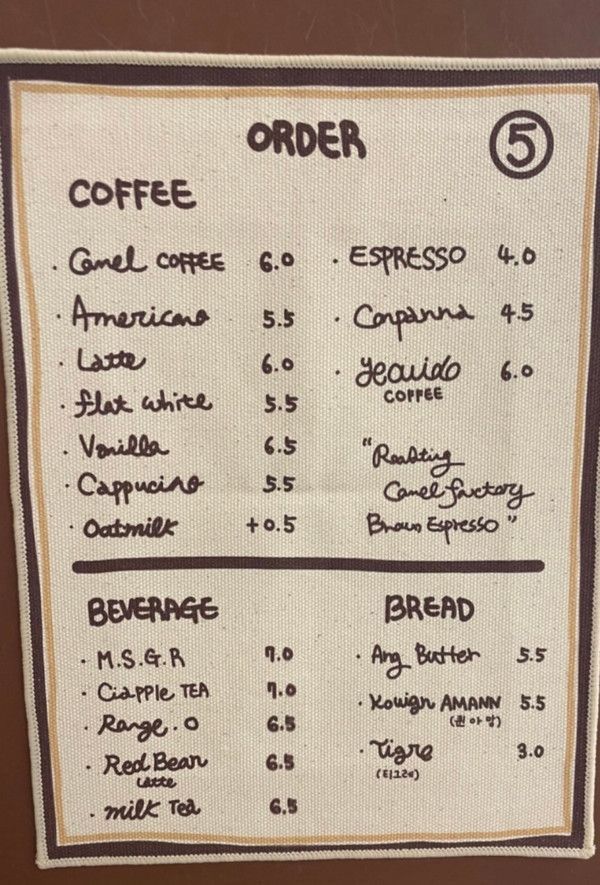 ORDER
⑤
COFFEE
· Canel COFFEE 6.0
· Americano 5.5
· Latte 6.0
· flat white 5.5
· Vanilla 6.5
· Cappucino 5.5
· Oatmilk +0.5
· ESPRESSO 4.0
· Conpanna 4.5
· Jeauido 6.0
COFFEE
"Roasting
Canel factory
Brown Espresso"
BEVERAGE
· M.S.G.R 7.0
· Ciapple TEA 7.0
· Range.O 6.5
· Red Bean 6.5
Latte
· milk Tea 6.5
BREAD
· Ang Butter 5.5
· Kouign AMANN 5.5
(퀸아망)
· Tigre 3.0
(티그레)